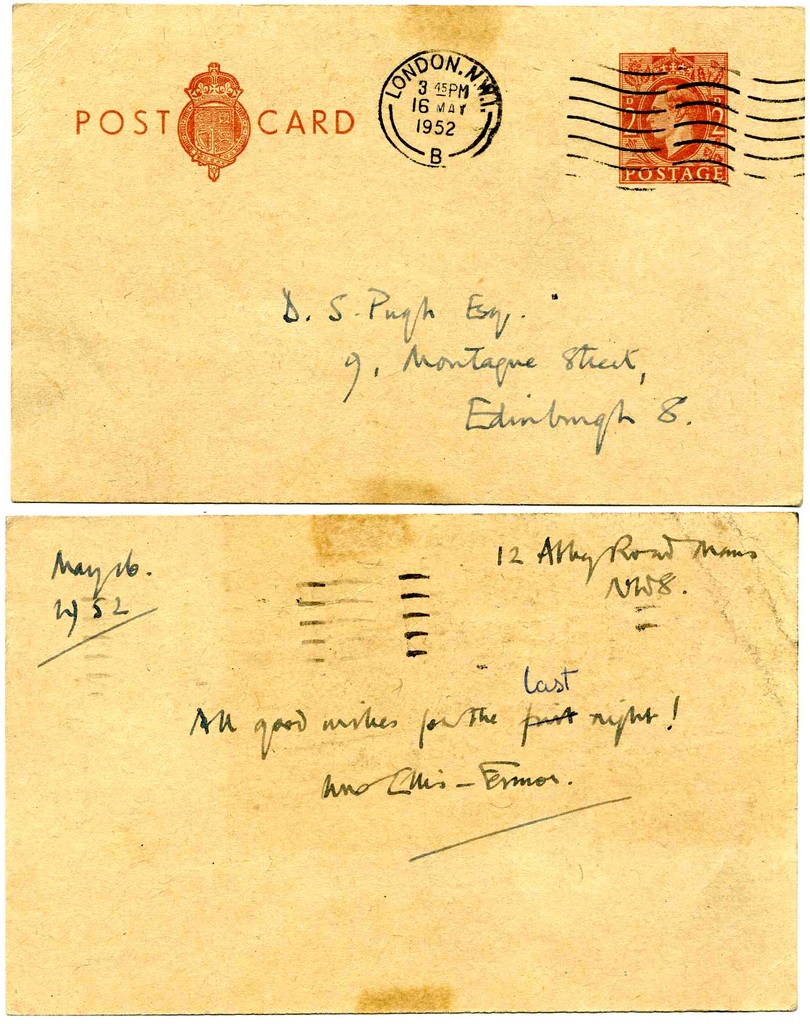 POST CARD
LONDON.N.W.1.
3 45PM
16 MAY
1952
B
D 2 D 2
POSTAGE
D. S. Pugh Esq.
9, Montague Street,
Edinburgh 8.
May 16.
1952
12 Abbey Road Mans
NW8.
last
All good wishes for the first night!
Ellis-Fermor.